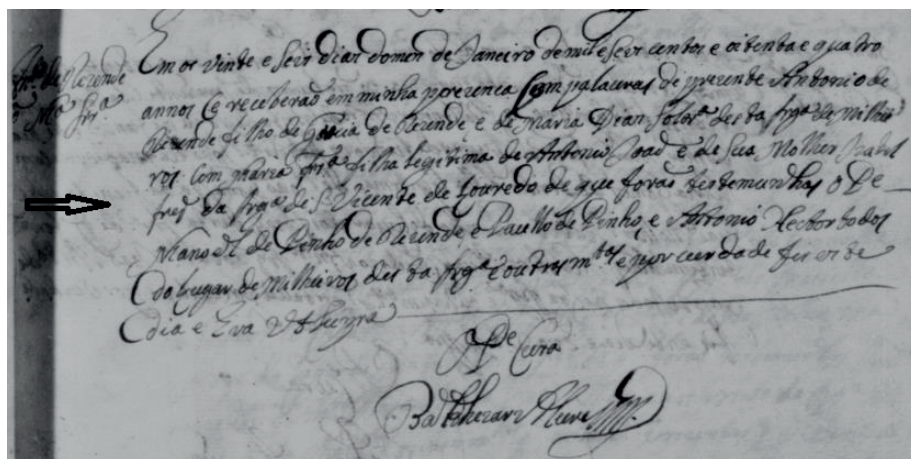 Em os vinte e seis dias do mes de Janeiro de mil e seis centos e oitenta e quatro
Rezende
Mª Frª
annos se receberaõ em minha prezenca com palauras de prezente Antonio de
Rezende filho de Gracia de Rezende e de Maria Dias solrª desta frgª de Milhei
ros com Maria Frª filha legitima de Antonio Joaõ e de sua Molher Izabel
frz da frgª de S. Vicente de Louredo de que foraõ testemunhas o Pe
Mano el de Pinho de Rezende, e Paullo de Pinho, e Antonio Hector todos
do lugar de Milheiros desta frgª e outros mtos e por uerdade fis este
dia e Era ut supra
O Pe Cura
Balthezar